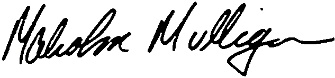 Malcolm Mulligan